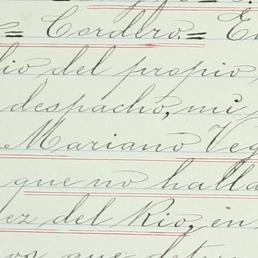 = Cordero. =
lio del propio
despacho, mi
Mariano Veg
que no halla
ez del Rio, en
os que deter